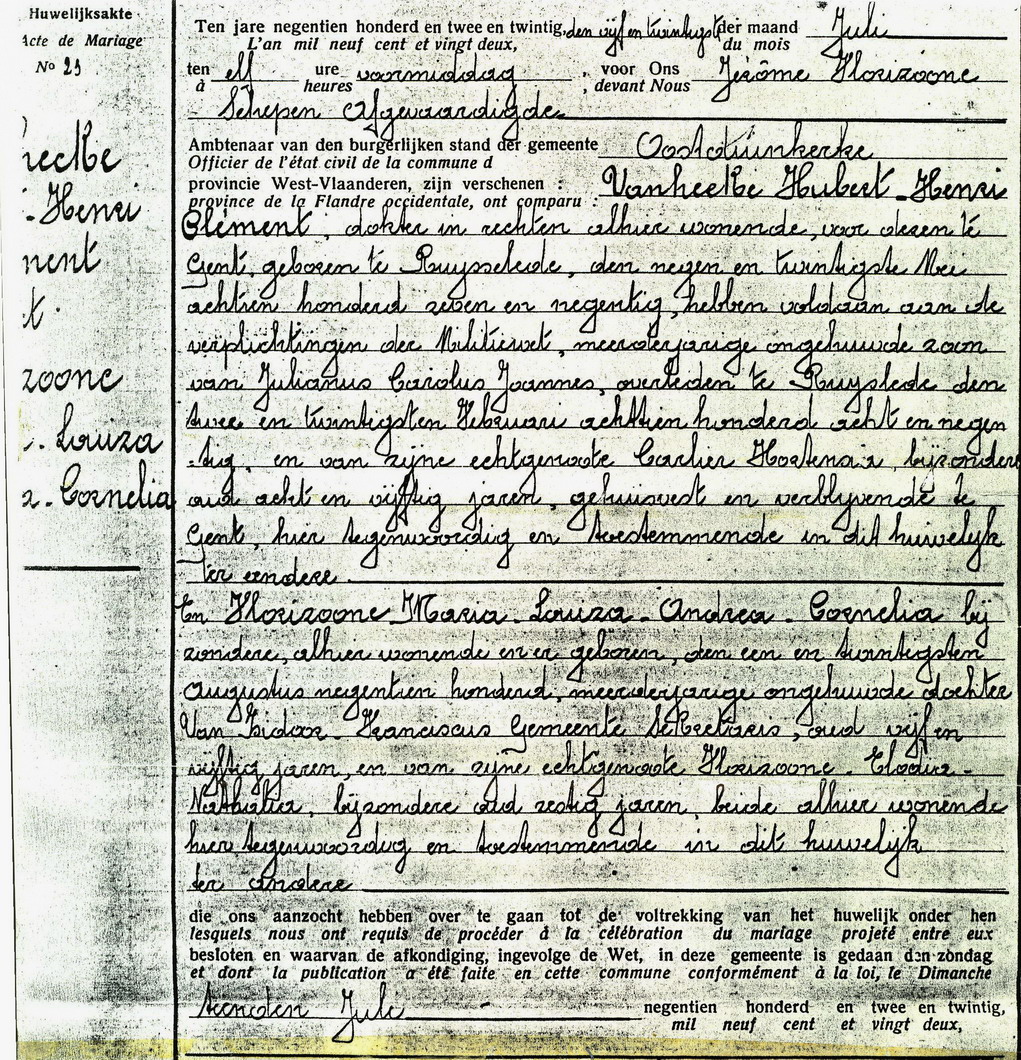 Huwelijksakte
Acte de Mariage
No 23
heckbe
- Henri
ment
t.
zoone
- Louiza
a - Cornelia
Ten jare negentien honderd en twee en twintig, den vijf en twintigst der maand Juli
L'an mil neuf cent et vingt deux, du mois
ten elf ure voormiddag, voor Ons Jérôme Florizoone
à heures , devant Nous
- Schepen Afgevaardigde
Ambtenaar van den burgerlijken stand der gemeente Oostduinkerke
Officier de l'état civil de la commune d
provincie West-Vlaanderen, zijn verschenen : Vanheckbe Hubert - Henri
province de la Flandre occidentale, ont comparu :
Clément, dokter in rechten alhier wonende, voor dezen te
Gent, geboren te Ruysselede, den negen en twintigste Mei
achtien honderd zeven en negentig, hebben voldaan aan de
verplichtingen der Militiewet, meerderjarige ongehuwde zoon
van Julianus Carolus Joannes, overleden te Ruyslede den
twee en twintigsten Februari achttien honderd acht en negen
-tig, en van zijne echtgenoote Carlier Hortensia, bijzondere
oud acht en vijftig jaren, gehuisvest en verblyvende te
Gent, hier tegenwoordig en toestemmende in dit huwelijk
ter eendere.
En Florizoone Maria - Louiza - Andrea - Cornelia bij
zondere, alhier wonende en er geboren, den een en twintigsten
Augustus negentien honderd, meerderjarige ongehuwde dochter
Van Isidoor - Franciscus Gemeente Sekretaris, oud vijf en
vijftig jaren, en van zijne echtgenoote Florizoone - Elodia -
Nathalia, bijzondere oud zestig jaren, beide alhier wonende
hier tegenwoordig en toestemmende in dit huwelijk
ter andere
die ons aanzocht hebben over te gaan tot de voltrekking van het huwelijk onder hen
lesquels nous ont requis de procéder à la célébration du mariage projeté entre eux
besloten en waarvan de afkondiging, ingevolge de Wet, in deze gemeente is gedaan den zondag
et dont la publication a été faite en cette commune conformément à la loi, le Dimanche
Juli - negentien honderd en twee en twintig,
mil neuf cent et vingt deux,